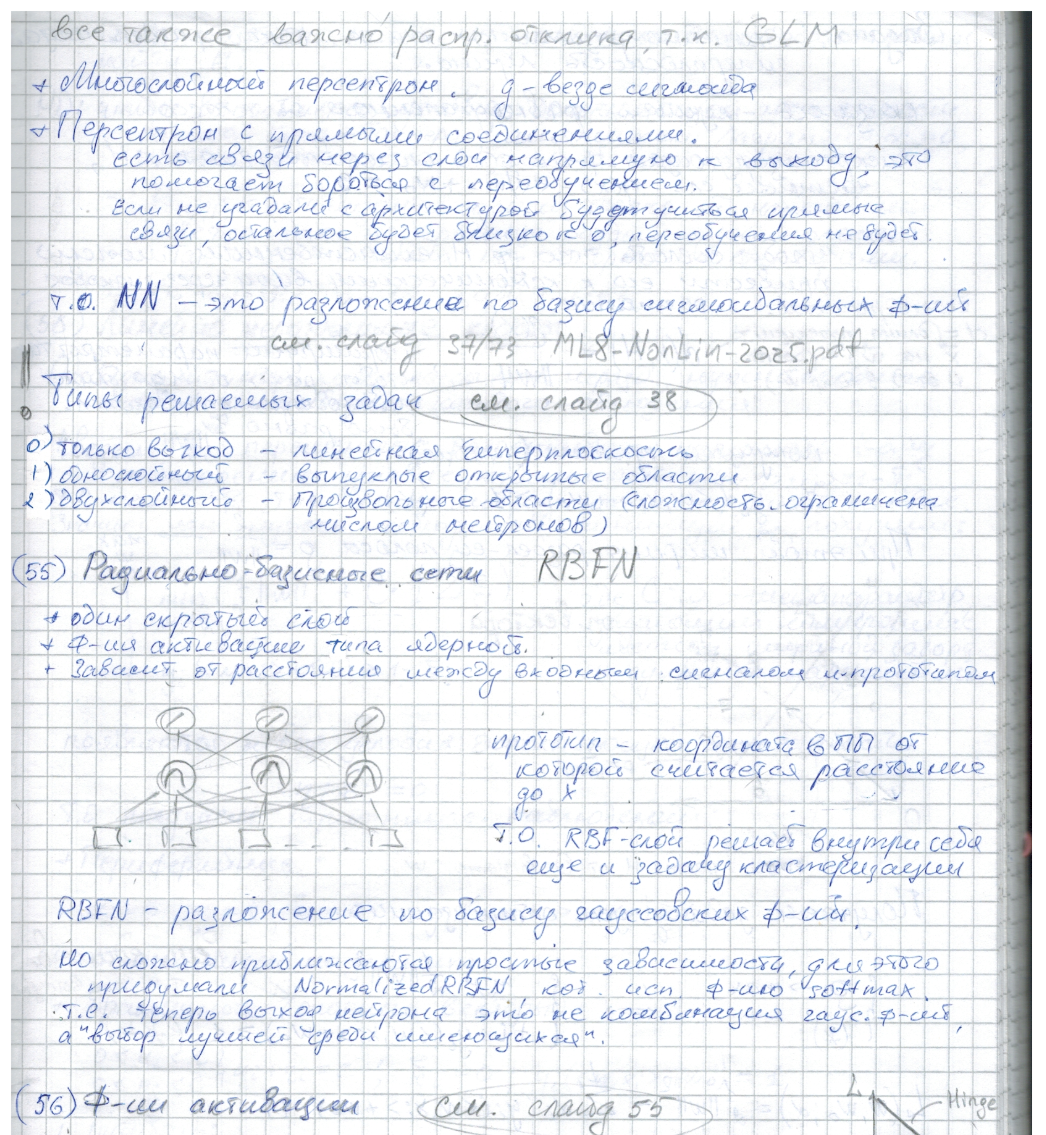 все также важно распр. отклика, т.к. GLM
+ Многослойный персептрон. g - везде сигмоида
+ Персептрон с прямыми соединениями.
есть связи через слои напрямую к выходу, это
помогает бороться с переобучением.
Если не угадали с архитектурой будут учиться прямые
связи, остальное будет близко к 0, переобучения не будет.
т.о. NN – это разложение по базису сигмоидальных ф-ий
см. слайд 37/73 ML8-NonLin-2025.pdf
Типы решаемых задач см. слайд 38
0) только выход – линейная гиперплоскость
1) однослойный – выпуклые открытые области
2) двухслойный – Произвольные области (сложность ограничена
числом нейронов)
(55) Радиально-базисные сети RBFN
+ один скрытый слой
+ Ф-ия активации типа ядерной.
+ Зависит от расстояния между входным сигналом и прототипом
прототип – координата в ПП от
которой считается расстояние
до x
Т.О. RBF-слой решает внутри себя
еще и задачу кластеризации
RBFN – разложение по базису гауссовских ф-ий.
Но сложно приближаются простые зависимости, для этого
придумали Normalized RBFN, кот. исп ф-ию softmax.
т.е. теперь выход нейрона это не комбинация гаус. ф-ий,
а "выбор лучшей среди имеющихся".
(56) Ф-ии активации см. слайд 55
L
Hinge